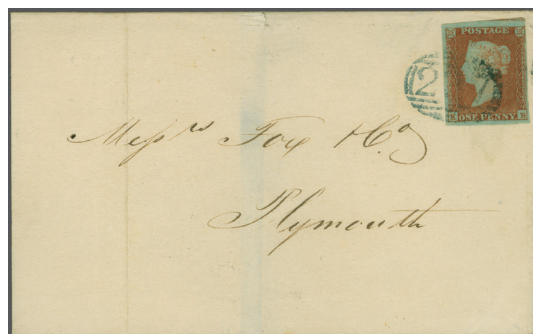 POSTAGE
ONE PENNY
2
Messrs Fox & Co
Plymouth